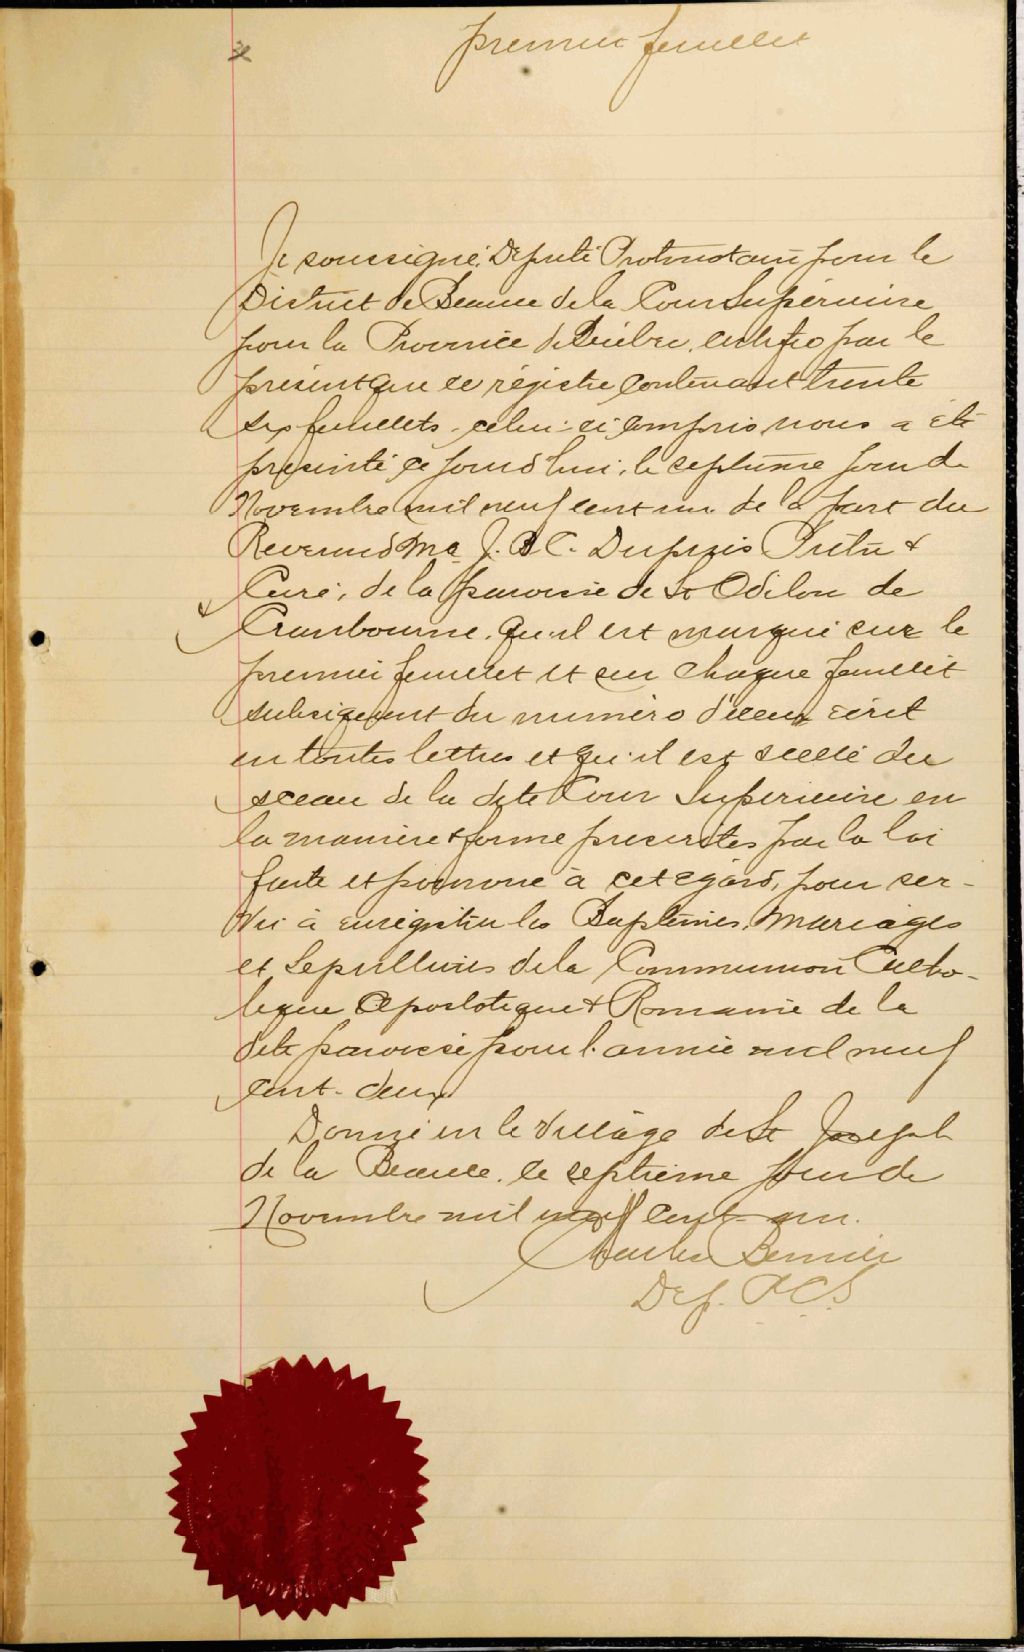 premier feuillet
Je soussigné, Député Protonotaire pour le
District de Beauce de la Cour Supérieure
pour la Province de Québec, certifie par le
présent que ce régistre contenant trente
six feuillets, celui-ci compris nous a été
présenté ce jourd'hui, le septième jour de
Novembre mil neuf cent un de la part du
Reverend Mr J. B. C. Dupuis Prêtre &
Curé, de la paroisse de St Odilon de
Cranbourne, qu'il est marqué sur le
premier feuillet et sur chaque feuillet
subséquent du numéro d'iceux écrit
en toutes lettres et qu'il est scellé du
sceau de la dite Cour Supérieure en
la manière & forme prescrites par la loi
faite et pourvue à cet égard, pour ser-
vir à enrégistrer les Baptêmes, Mariages
et Sépultures de la Communion Catho-
lique Apostolique & Romaine de la
dite paroisse pour l'année mil neuf
cent-deux
Donné en le Village de St Joseph
de la Beauce, ce septième jour de
Novembre mil neuf cent-un.
Charles Bernier
Dep. P.C.S.